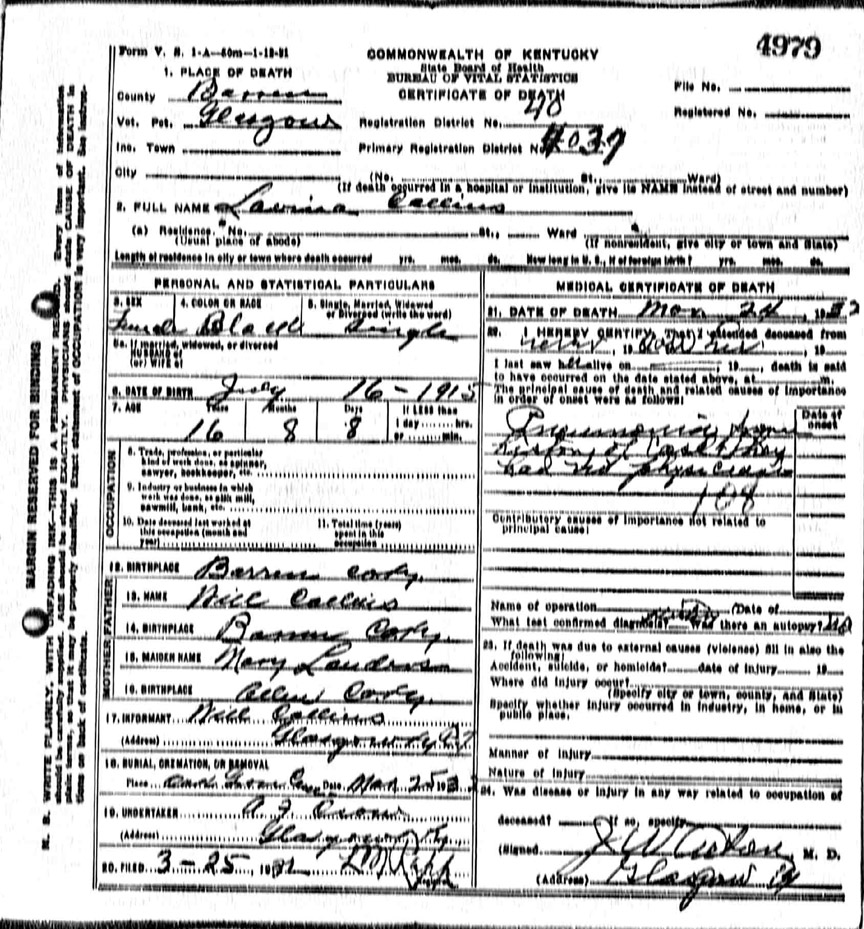 4979
Form V. S. 1-A—50m—1-12-31
COMMONWEALTH OF KENTUCKY
State Board of Health
BUREAU OF VITAL STATISTICS
CERTIFICATE OF DEATH
1. PLACE OF DEATH
County Barren
File No.
Registered No.
Vot. Pct. Glasgow Registration District No. 40
Inc. Town Primary Registration District No. 4037
City (No. St., Ward)
(If death occurred in a hospital or institution, give its NAME instead of street and number)
2. FULL NAME Collins
(a) Residence. No. St., Ward
(Usual place of abode) (If nonresident, give city or town and State)
Length of residence in city or town where death occurred yrs. mos. ds. How long in U. S., if of foreign birth? yrs. mos. ds.
PERSONAL AND STATISTICAL PARTICULARS
3. SEX 4. COLOR OR RACE 5. Single, Married, Widowed or Divorced (write the word)
Female Black Single
5a. If married, widowed, or divorced
HUSBAND of
(or) WIFE of
6. DATE OF BIRTH July 16-1915
7. AGE Years Months Days If LESS than
16 8 8 1 day hrs.
or min.
OCCUPATION
8. Trade, profession, or particular
kind of work done, as spinner,
sawyer, bookkeeper, etc.
9. Industry or business in which
work was done, as silk mill,
sawmill, bank, etc.
10. Date deceased last worked at
this occupation (month and
year)
11. Total time (years)
spent in this
occupation
12. BIRTHPLACE Barren
FATHER
13. NAME Will Collins
14. BIRTHPLACE Barren
MOTHER
15. MAIDEN NAME Mary
16. BIRTHPLACE Allen
17. INFORMANT Will Collins
(Address) Glasgow Ky
18. BURIAL, CREMATION, OR REMOVAL
Place Date Mar 25 193
19. UNDERTAKER
(Address) Glasgow Ky
20. FILED 3-25 193
MEDICAL CERTIFICATE OF DEATH
21. DATE OF DEATH Mar 24, 1932
22. I HEREBY CERTIFY, That I attended deceased from
, 19 , 19
I last saw h alive on , 19 , death is said
to have occurred on the date stated above, at m.
The principal cause of death and related causes of importance
in order of onset were as follows:
Date of onset
Pneumonia from
history of case they
had no physician
108
Contributory causes of importance not related to
principal cause:
Name of operation Date of
What test confirmed diagnosis? Was there an autopsy? No
23. If death was due to external causes (violence) fill in also the
following:
Accident, suicide, or homicide? date of injury 19
Where did injury occur?
(Specify city or town, county, and State)
Specify whether injury occurred in industry, in home, or in
public place.
Manner of Injury
Nature of Injury
24. Was disease or injury in any way related to occupation of
deceased? If so, specify
(Signed) J W M. D.
(Address) Glasgow Ky
MARGIN RESERVED FOR BINDING
N. B. WRITE PLAINLY, WITH UNFADING INK—THIS IS A PERMANENT RECORD. Every item of information
should be carefully supplied. AGE should be stated EXACTLY. PHYSICIANS should state CAUSE OF DEATH in
plain terms, so that it may be properly classified. Exact statement of OCCUPATION is very important. See instruc-
tions on back of certificate.